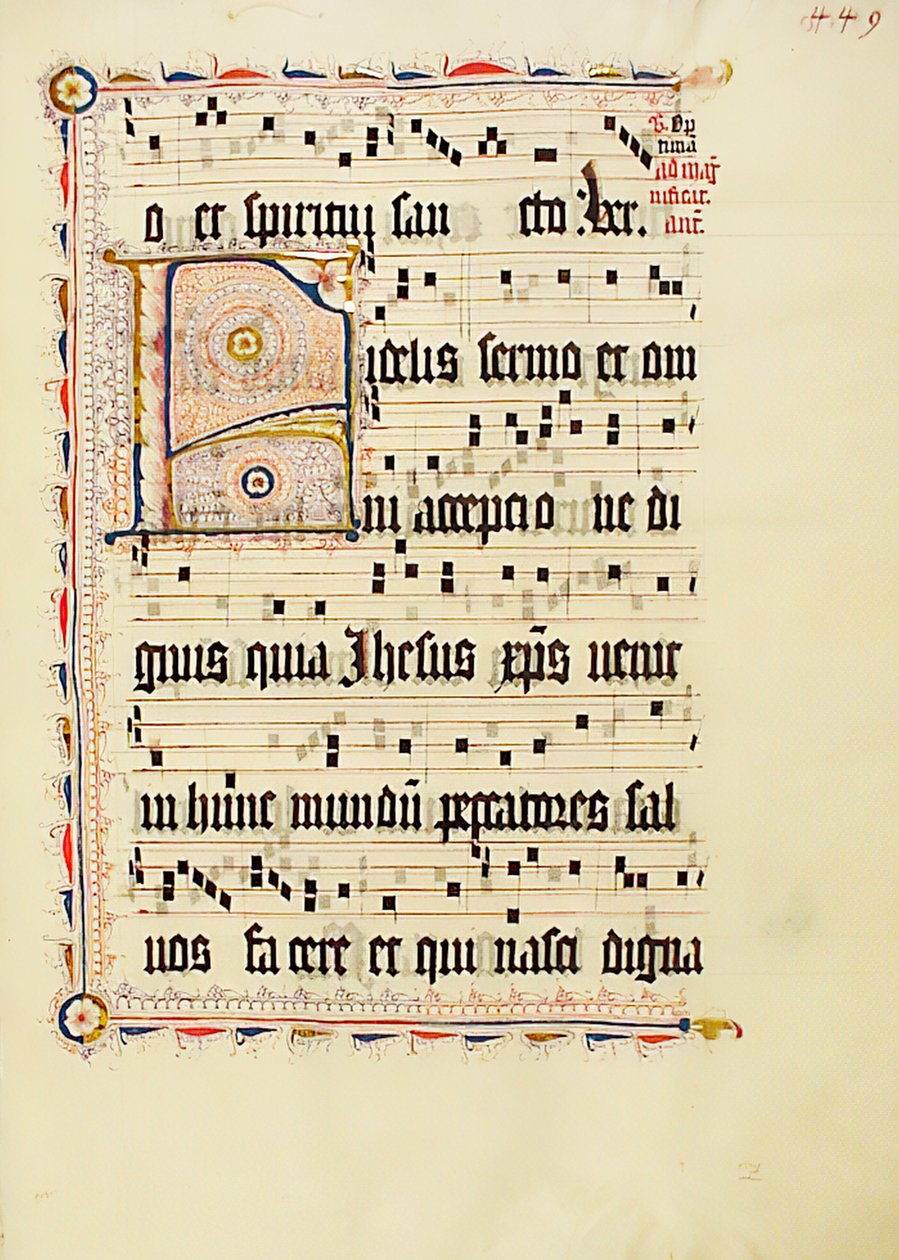 449
o et spiritui san cto : Ver.
ad mag̃
nificat.
ant̃.
Fidelis sermo et om
ni acceptio ne di
gnus quia Jhesus xp̄s uenit
in hunc mundū peccatores sal
uos facere et qui nasci digna